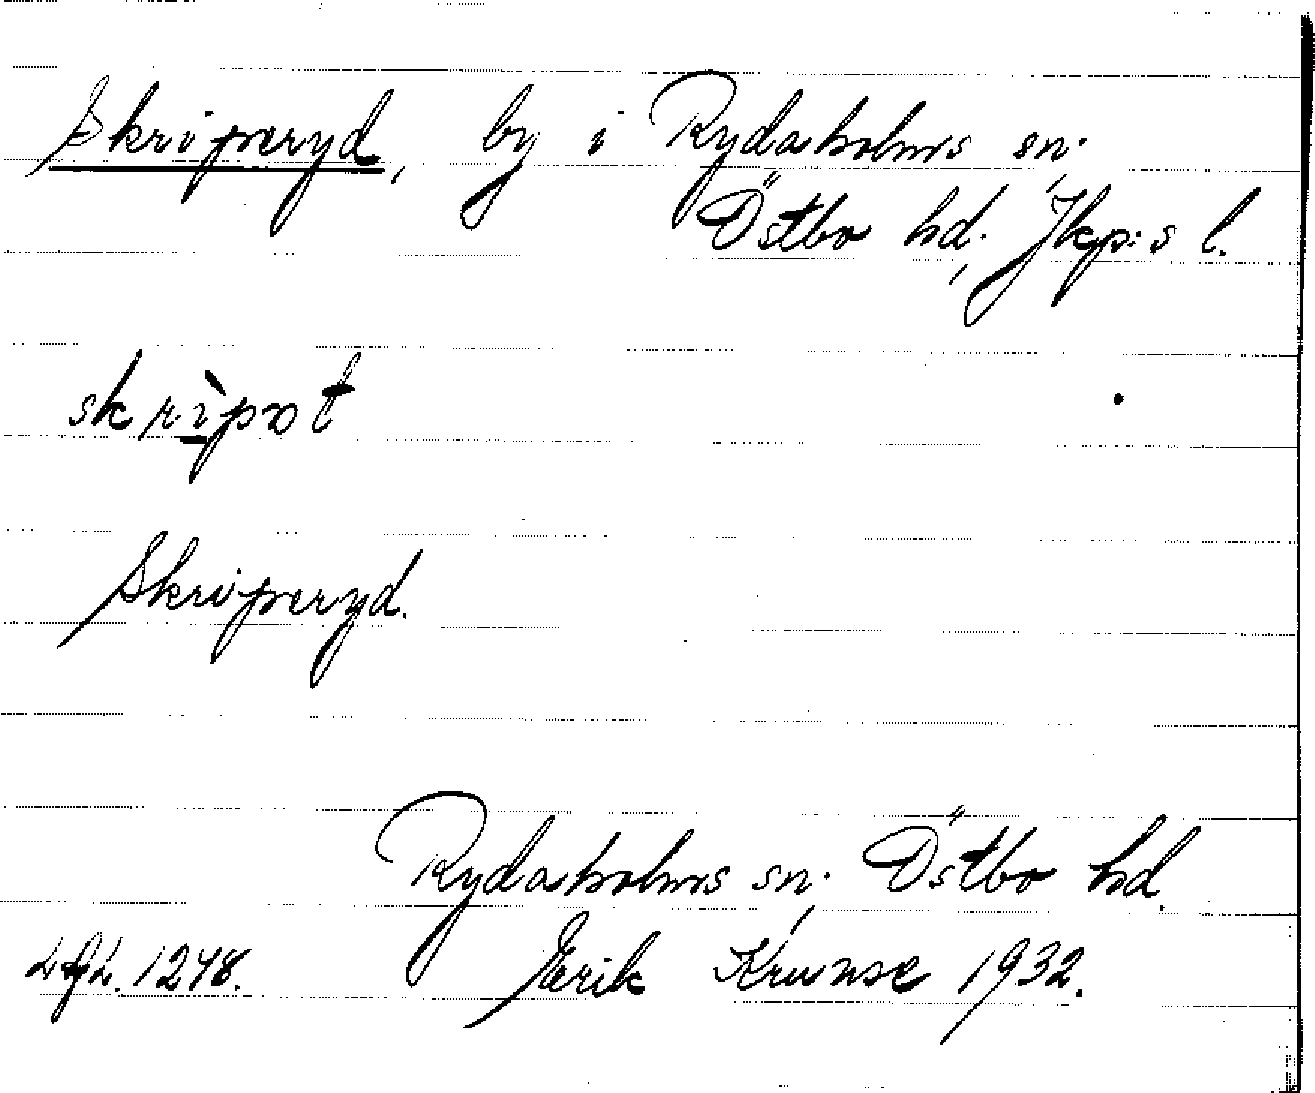 Skriperyd, by i Rydaholms sn.
Östbo hd, Jkp:s l.
skrìpət
Skriperyd.
Rydaholms sn. Östbo hd.
1248. Erik Krunse 1932.